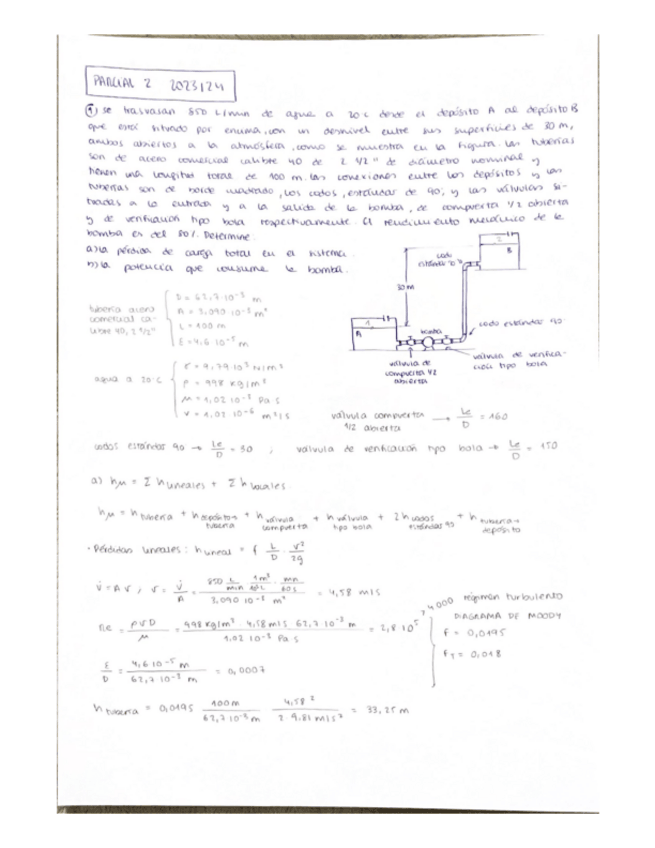 PARCIAL 2 2023/24
① se trasvasan 850 L/min de agua a 20°C desde el depósito A al depósito B
que está situado por encima, con un desnivel entre sus superficies de 30 m,
ambos abiertos a la atmósfera, como se muestra en la figura. Las tuberías
son de acero comercial calibre 40 de 2 1/2" de diámetro nominal y
tienen una longitud total de 100 m. Las conexiones entre los depósitos y las
tuberías son de borde cuadrado, los codos, estándar de 90°, y las válvulas si-
tuadas a la entrada y a la salida de la bomba, de compuerta 1/2 abierta
y de verificación tipo bola respectivamente. El rendimiento mecánico de la
bomba es del 80%. Determine:
a) la pérdida de carga total en el sistema.
b) la potencia que consume la bomba.
2
B
codo
estándar 90°
30 m
1
A
bomba
codo estándar 90°
válvula de
compuerta 1/2
abierta
válvula de verifica-
ción tipo bola
tubería acero
comercial ca-
libre 40, 2 1/2"
D = 62,7·10⁻³ m
A = 3,090·10⁻³ m²
L = 100 m
E = 4,6·10⁻⁵ m
agua a 20°C
γ = 9,79·10³ N/m³
ρ = 998 kg/m³
μ = 1,02·10⁻³ Pa·s
ν = 1,02·10⁻⁶ m²/s
válvula compuerta 1/2 abierta → Le/D = 160
codos estándar 90 → Le/D = 30 ; válvula de verificación tipo bola → Le/D = 150
a) hμ = Σ h lineales + Σ h locales
hμ = h tubería + h depósito→tubería + h válvula compuerta + h válvula tipo bola + 2 h codos estándar 90 + h tubería→depósito
· Pérdidas lineales: h lineal = f L/D · v²/2g
V̇ = A v ; v = V̇/A = (850 L/min · 1m³/10³L · min/60s) / (3,090·10⁻³ m²) = 4,58 m/s
Re = ρVD/μ = (998 kg/m³ · 4,58 m/s · 62,7·10⁻³ m) / (1,02·10⁻³ Pa·s) = 2,8·10⁵ > 4000 régimen turbulento
DIAGRAMA DE MOODY
f = 0,0195
f_T = 0,018
E/D = (4,6·10⁻⁵ m) / (62,7·10⁻³ m) = 0,0007
h tubería = 0,0195 · 100m / (62,7·10⁻³ m) · 4,58² / (2·9,81 m/s²) = 33,25 m